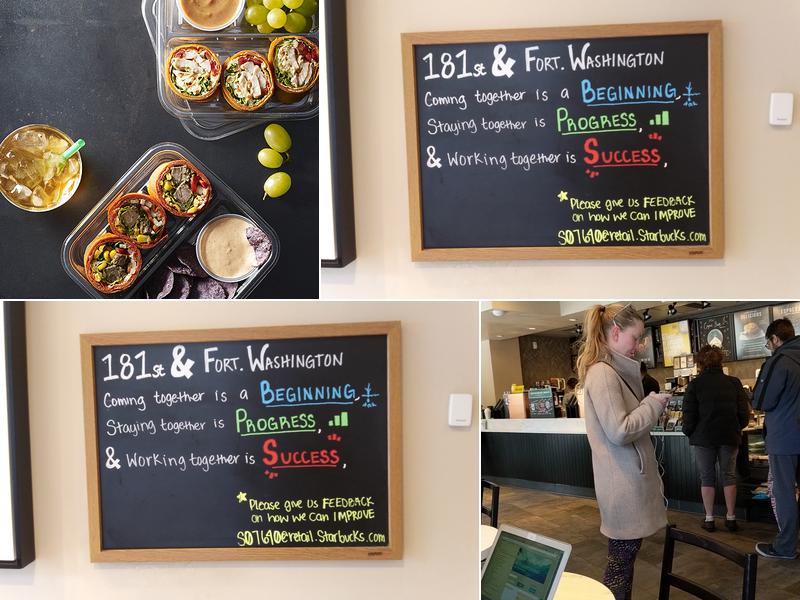 181st & FORT. WASHINGTON
Coming together is a BEGINNING,
Staying together is PROGRESS,
& Working together is SUCCESS,
Please give us FEEDBACK
on how we can IMPROVE
S07640@retail.Starbucks.com
181st & FORT. WASHINGTON
Coming together is a BEGINNING,
Staying together is PROGRESS,
& Working together is SUCCESS,
Please give us FEEDBACK
on how we can IMPROVE
S07640@retail.Starbucks.com
DELICIOUS